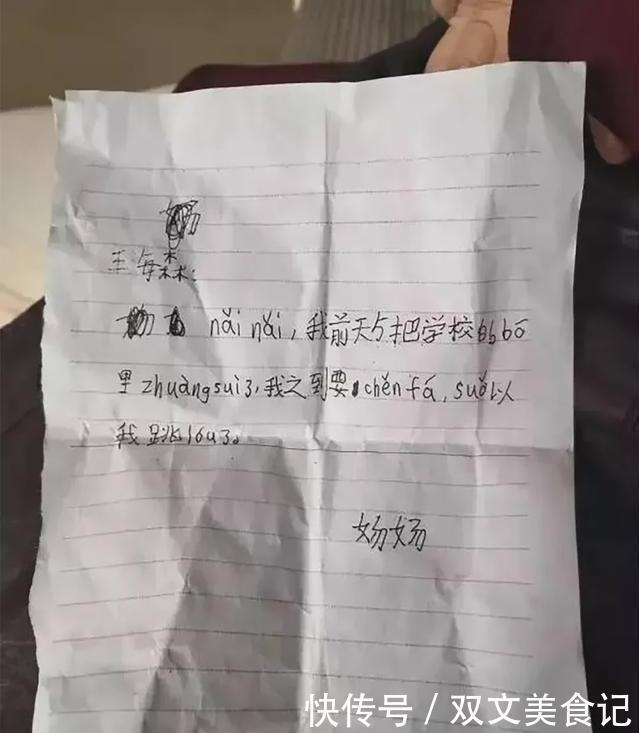 王每森:
nǎi nǎi,我前天把学校的bō
里zhuàngsuì3,我之到要chěnfá,suǒ以
我跳lóu3。
快传号 / 双文美食记